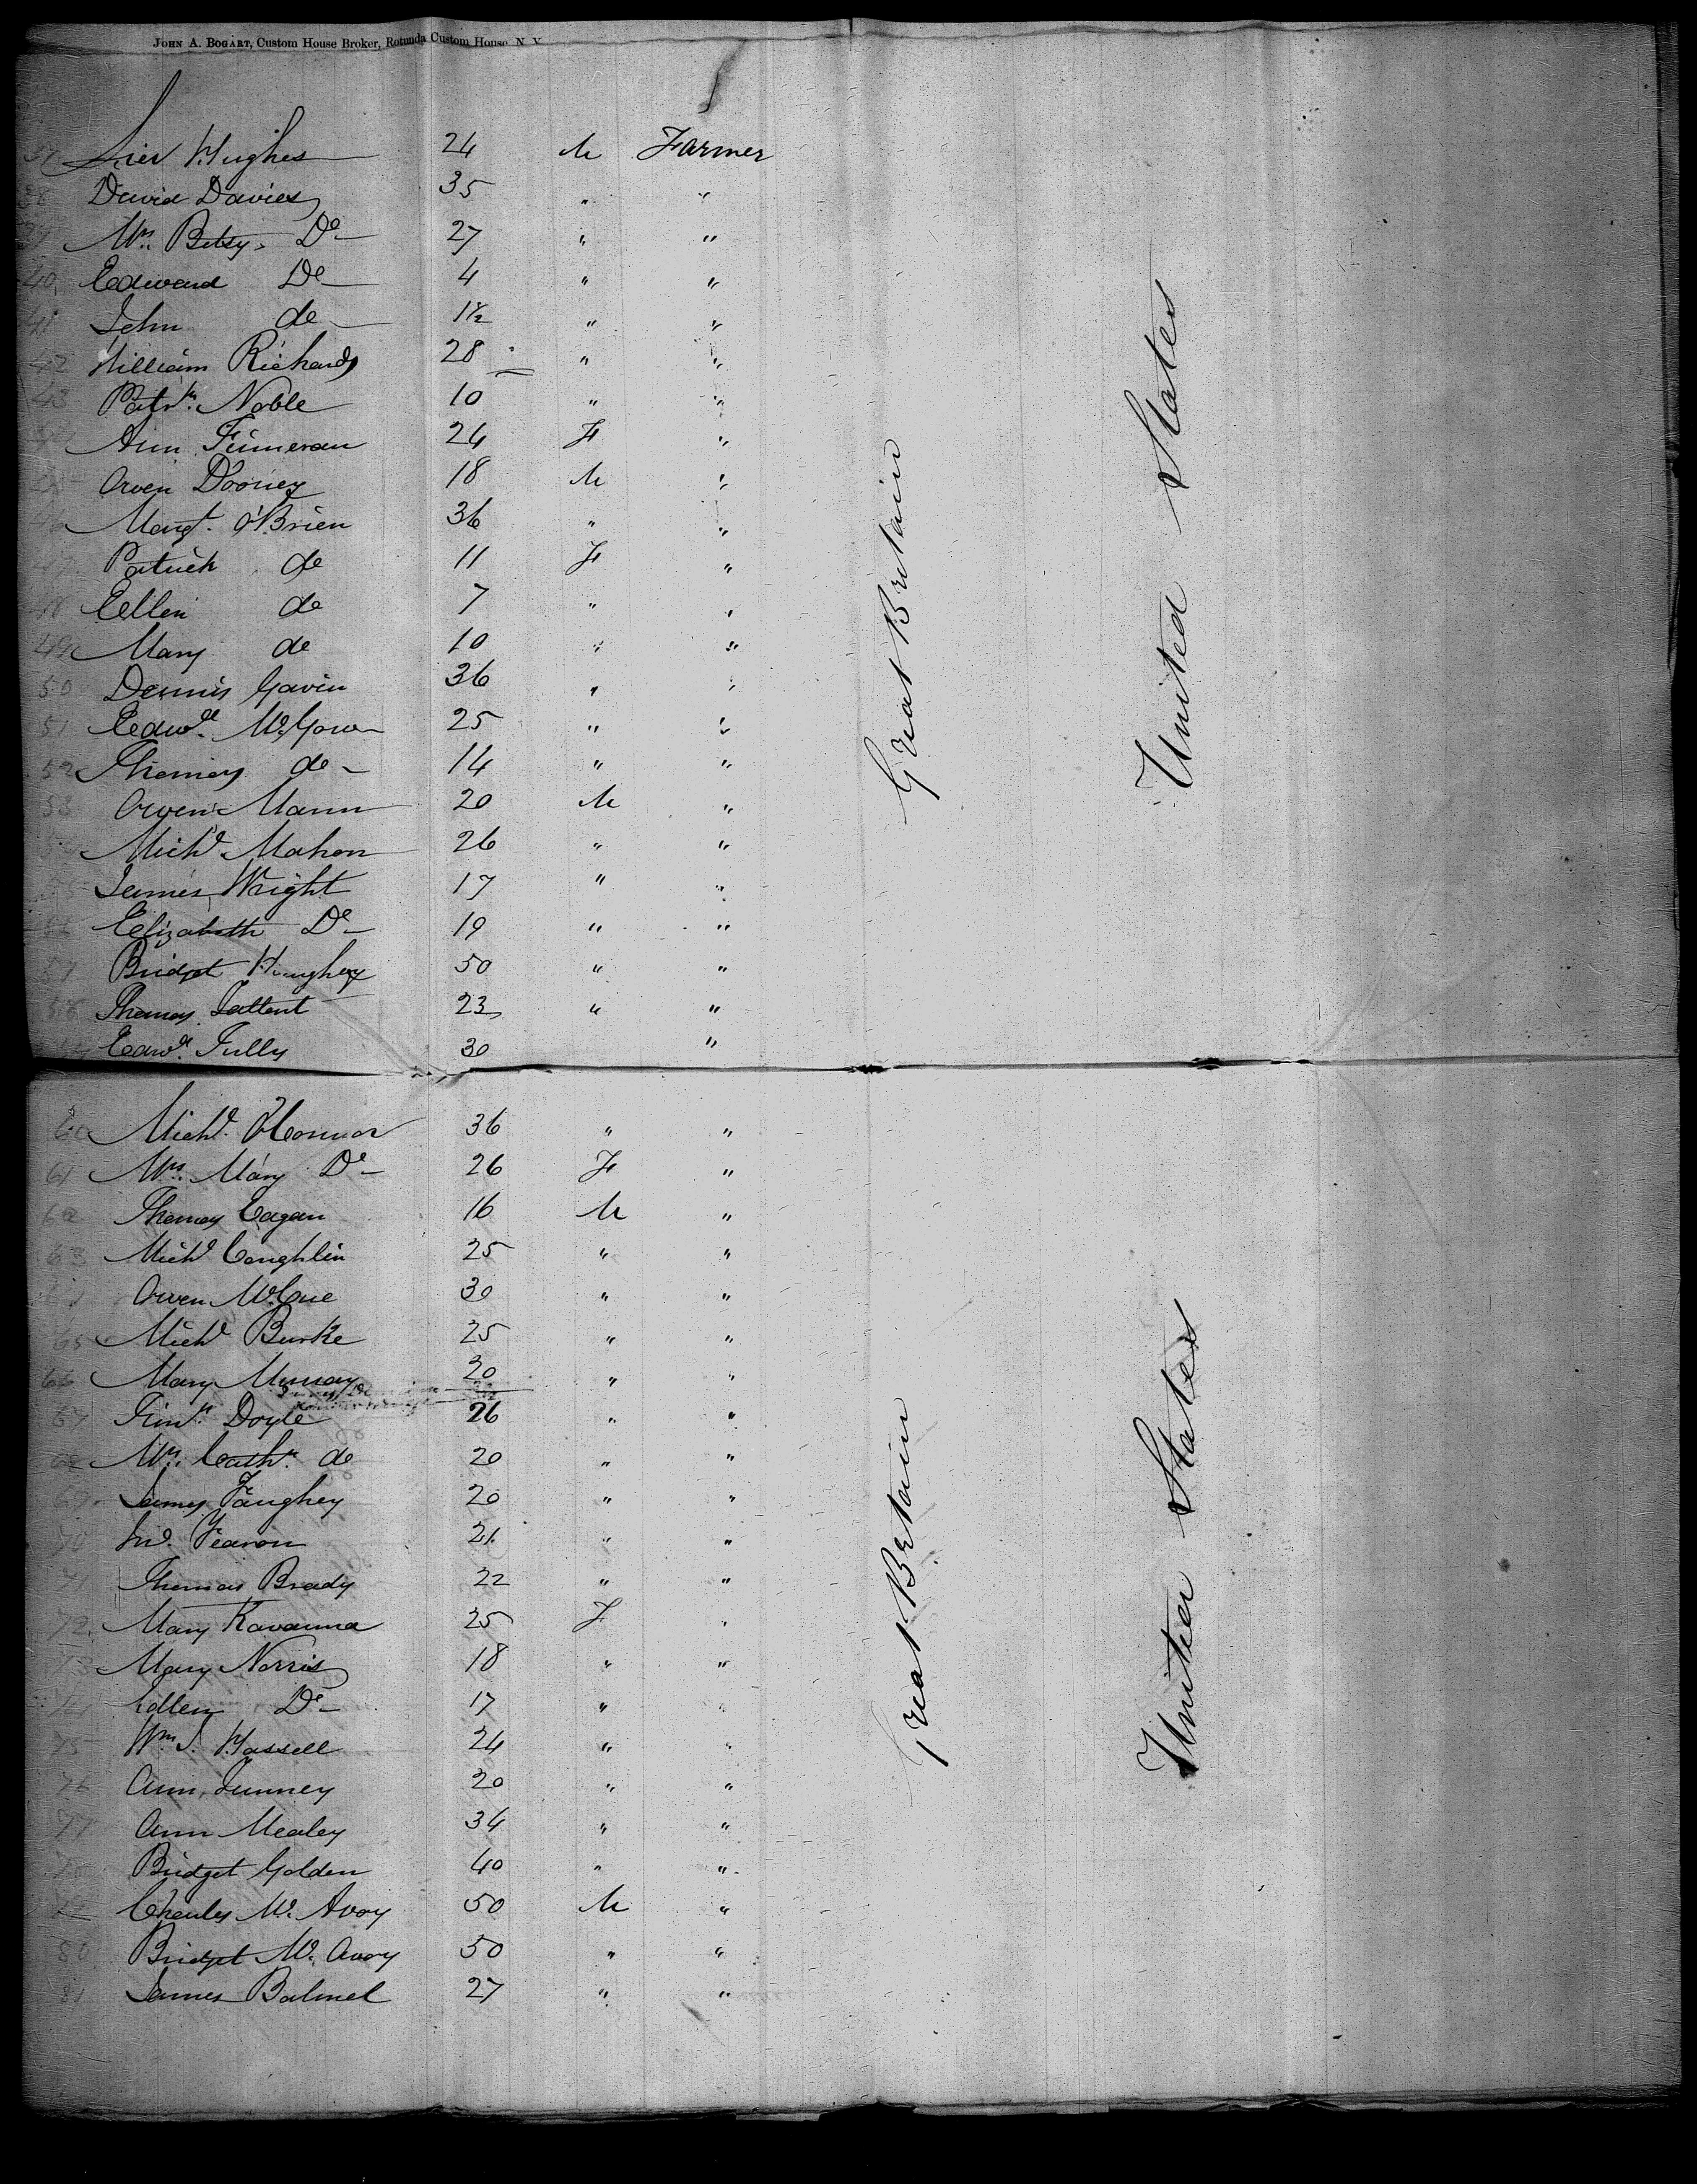 JOHN A. BOGART, Custom House Broker, Rotunda Custom House, N. Y.
37 Hughes 24 M Farmer
38 David Davies 35 " "
39 Mrs. Betsy Do 27 " "
40 Edward Do 4 " "
41 John do 1½ " "
42 William Richards 28 " "
43 Patrk. Noble 10 " "
Ann Finneran 24 F "
Owen Dooney 18 M "
Margt. O'Brien 36 " "
47 Patrick do 11 F "
48 Ellen do 7 " "
49 Mary do 10 " "
50 Dennis Gavin 36 " "
51 Edwd. McGowan 25 " "
52 Thomas do 14 " "
53 Owen Mann 20 M "
Michl Mahon 26 " "
James Wright 17 " "
56 Elizabeth Do 19 " "
57 Bridget Houghey 50 " "
58 Thomas Tattent 23 " "
Edwd. Tully 30 "
60 Michl. O'Connor 36 " "
61 Mrs. Mary Do 26 F "
62 Thomas Eagan 16 M "
63 Michl Coughlin 25 " "
Owen McCue 30 " "
65 Michl Burke 25 " "
66 Mary Murray 20 " "
67 Timy. Doyle 26 " "
68 Mrs. Cathn. do 20 " "
69 James Faughey 20 " "
70 Jno. Fearon 21 " "
71 Thomas Brady 22 " "
72 Mary Kavanna 25 F "
73 Mary Norris 18 " "
74 Ellen Do 17 "
75 Wm J. Hassell 24 " "
76 Ann Tunney 20 " "
77 Ann Mealey 34 " "
78 Bridget Golden 40 " "
79 Charles Mc. Avoy 50 M "
80 Bridget Mc. Avoy 50 " "
81 James Balmel 27 " "
Great Britain
United States
Great Britain
United States